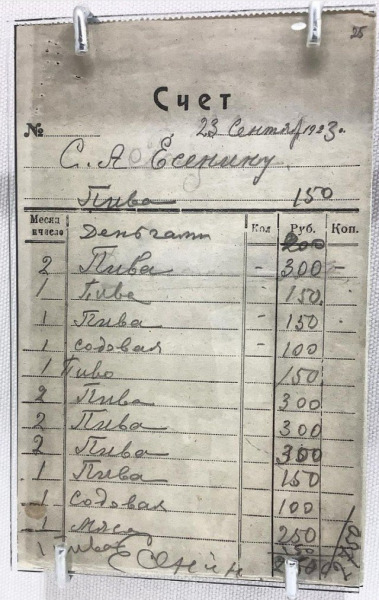 25
Счет
№ 23 Сентяб 1923 г.
С. А Есенину.
Пива 150
Месяц и число Кол Руб. Коп.
Деньгами 200
2 Пива - 300 -
1 Пива - 150
1 Пива - 150
1 содовая - 100
1 Пиво 150
2 Пива 300
2 Пива 300
2 Пива 300
1 Пива 150
1 Содовая 100
1 Мясо 250
1 Пива
Есенин